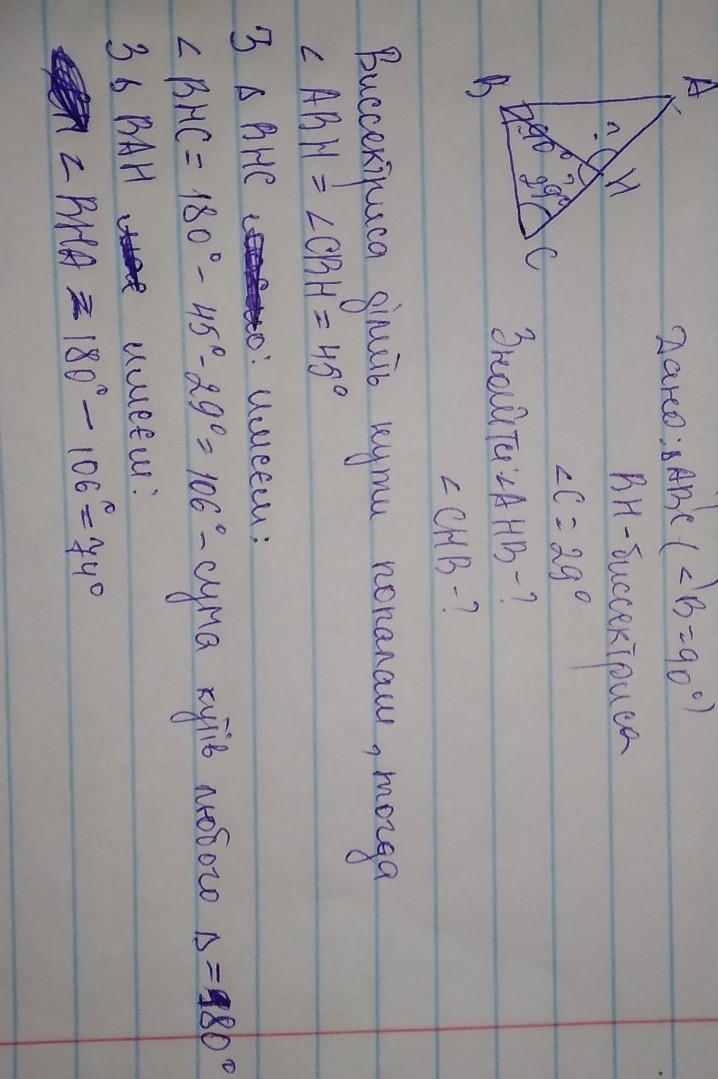 A
H
?
?
90°
29°
B
C
Дано: ΔABC (∠B=90°)
BH-биссектриса
∠C = 29°
Знайти: ∠AHB-?
∠CHB-?
Виссектриса ділить кути попалам, тогда
∠ABH = ∠CBH = 45°
З Δ BHC : имєєм:
∠BHC = 180° - 45° - 29° = 106° - сума кутів любого Δ = 180°
З Δ BAH имєєм:
∠BHA = 180° - 106° = 74°